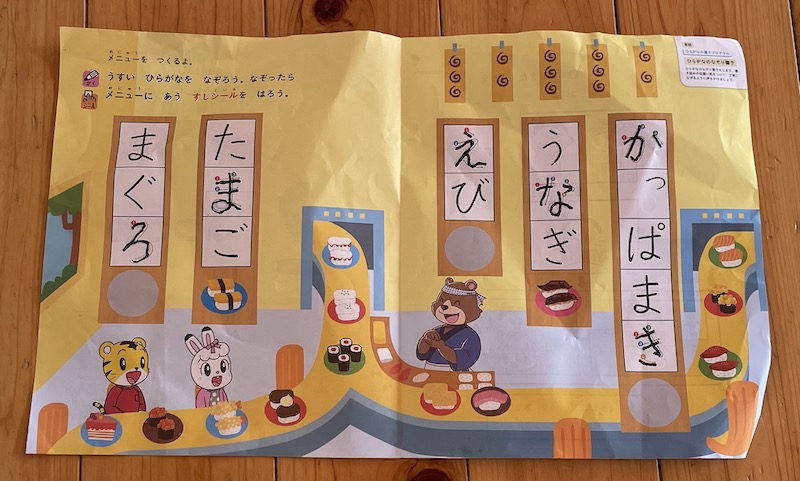 メニューを つくるよ。
うすい ひらがなを なぞろう。なぞったら
メニューに あう すしシールを はろう。
ひらがなのなぞり書き
かっぱまき
うなぎ
えび
たまご
まぐろ